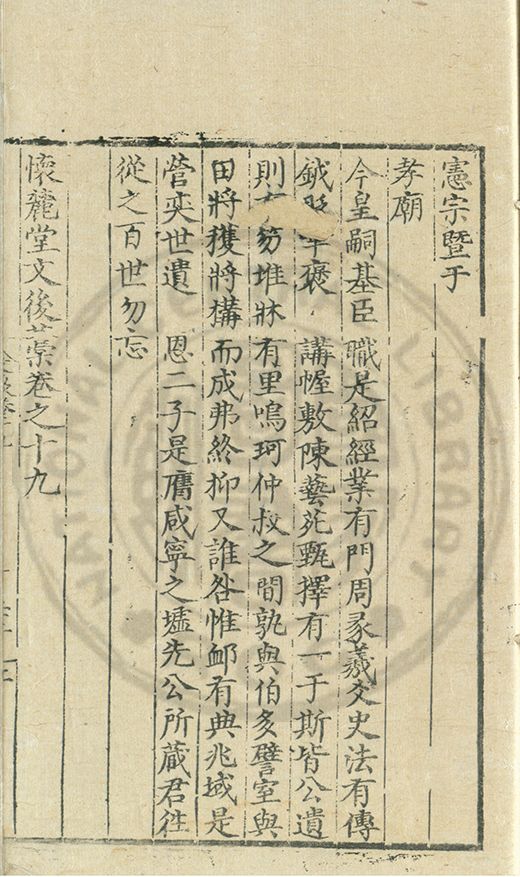 憲宗暨于
孝廟
今皇嗣基臣 職是紹經業有門周彖羲爻史法有傳
鉞 褒 講幄敷陳藝苑甄擇有一于斯皆公遺
則 笏堆牀有里鳴珂仲叔之間孰與伯多譬室與
田將獲將構而成弗終抑又誰咎惟卹有典兆域是
營奕世遺 恩二子是膺咸寧之墟先公所蔵君徃
從之百世勿忘
懷麓堂文後藁卷之十九